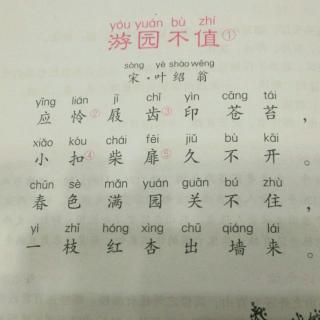 yóu yuán bù zhí
游园不值①
sòng yè shào wēng
宋·叶绍翁
yīng lián jī chǐ yìn cāng tái
应怜②屐齿③印苍苔，
xiǎo kòu chái fēi jiǔ bù kāi
小扣④柴扉⑤久不开。
chūn sè mǎn yuán guān bú zhù
春色满园关不住，
yì zhī hóng xìng chū qiáng lái
一枝红杏出墙来。